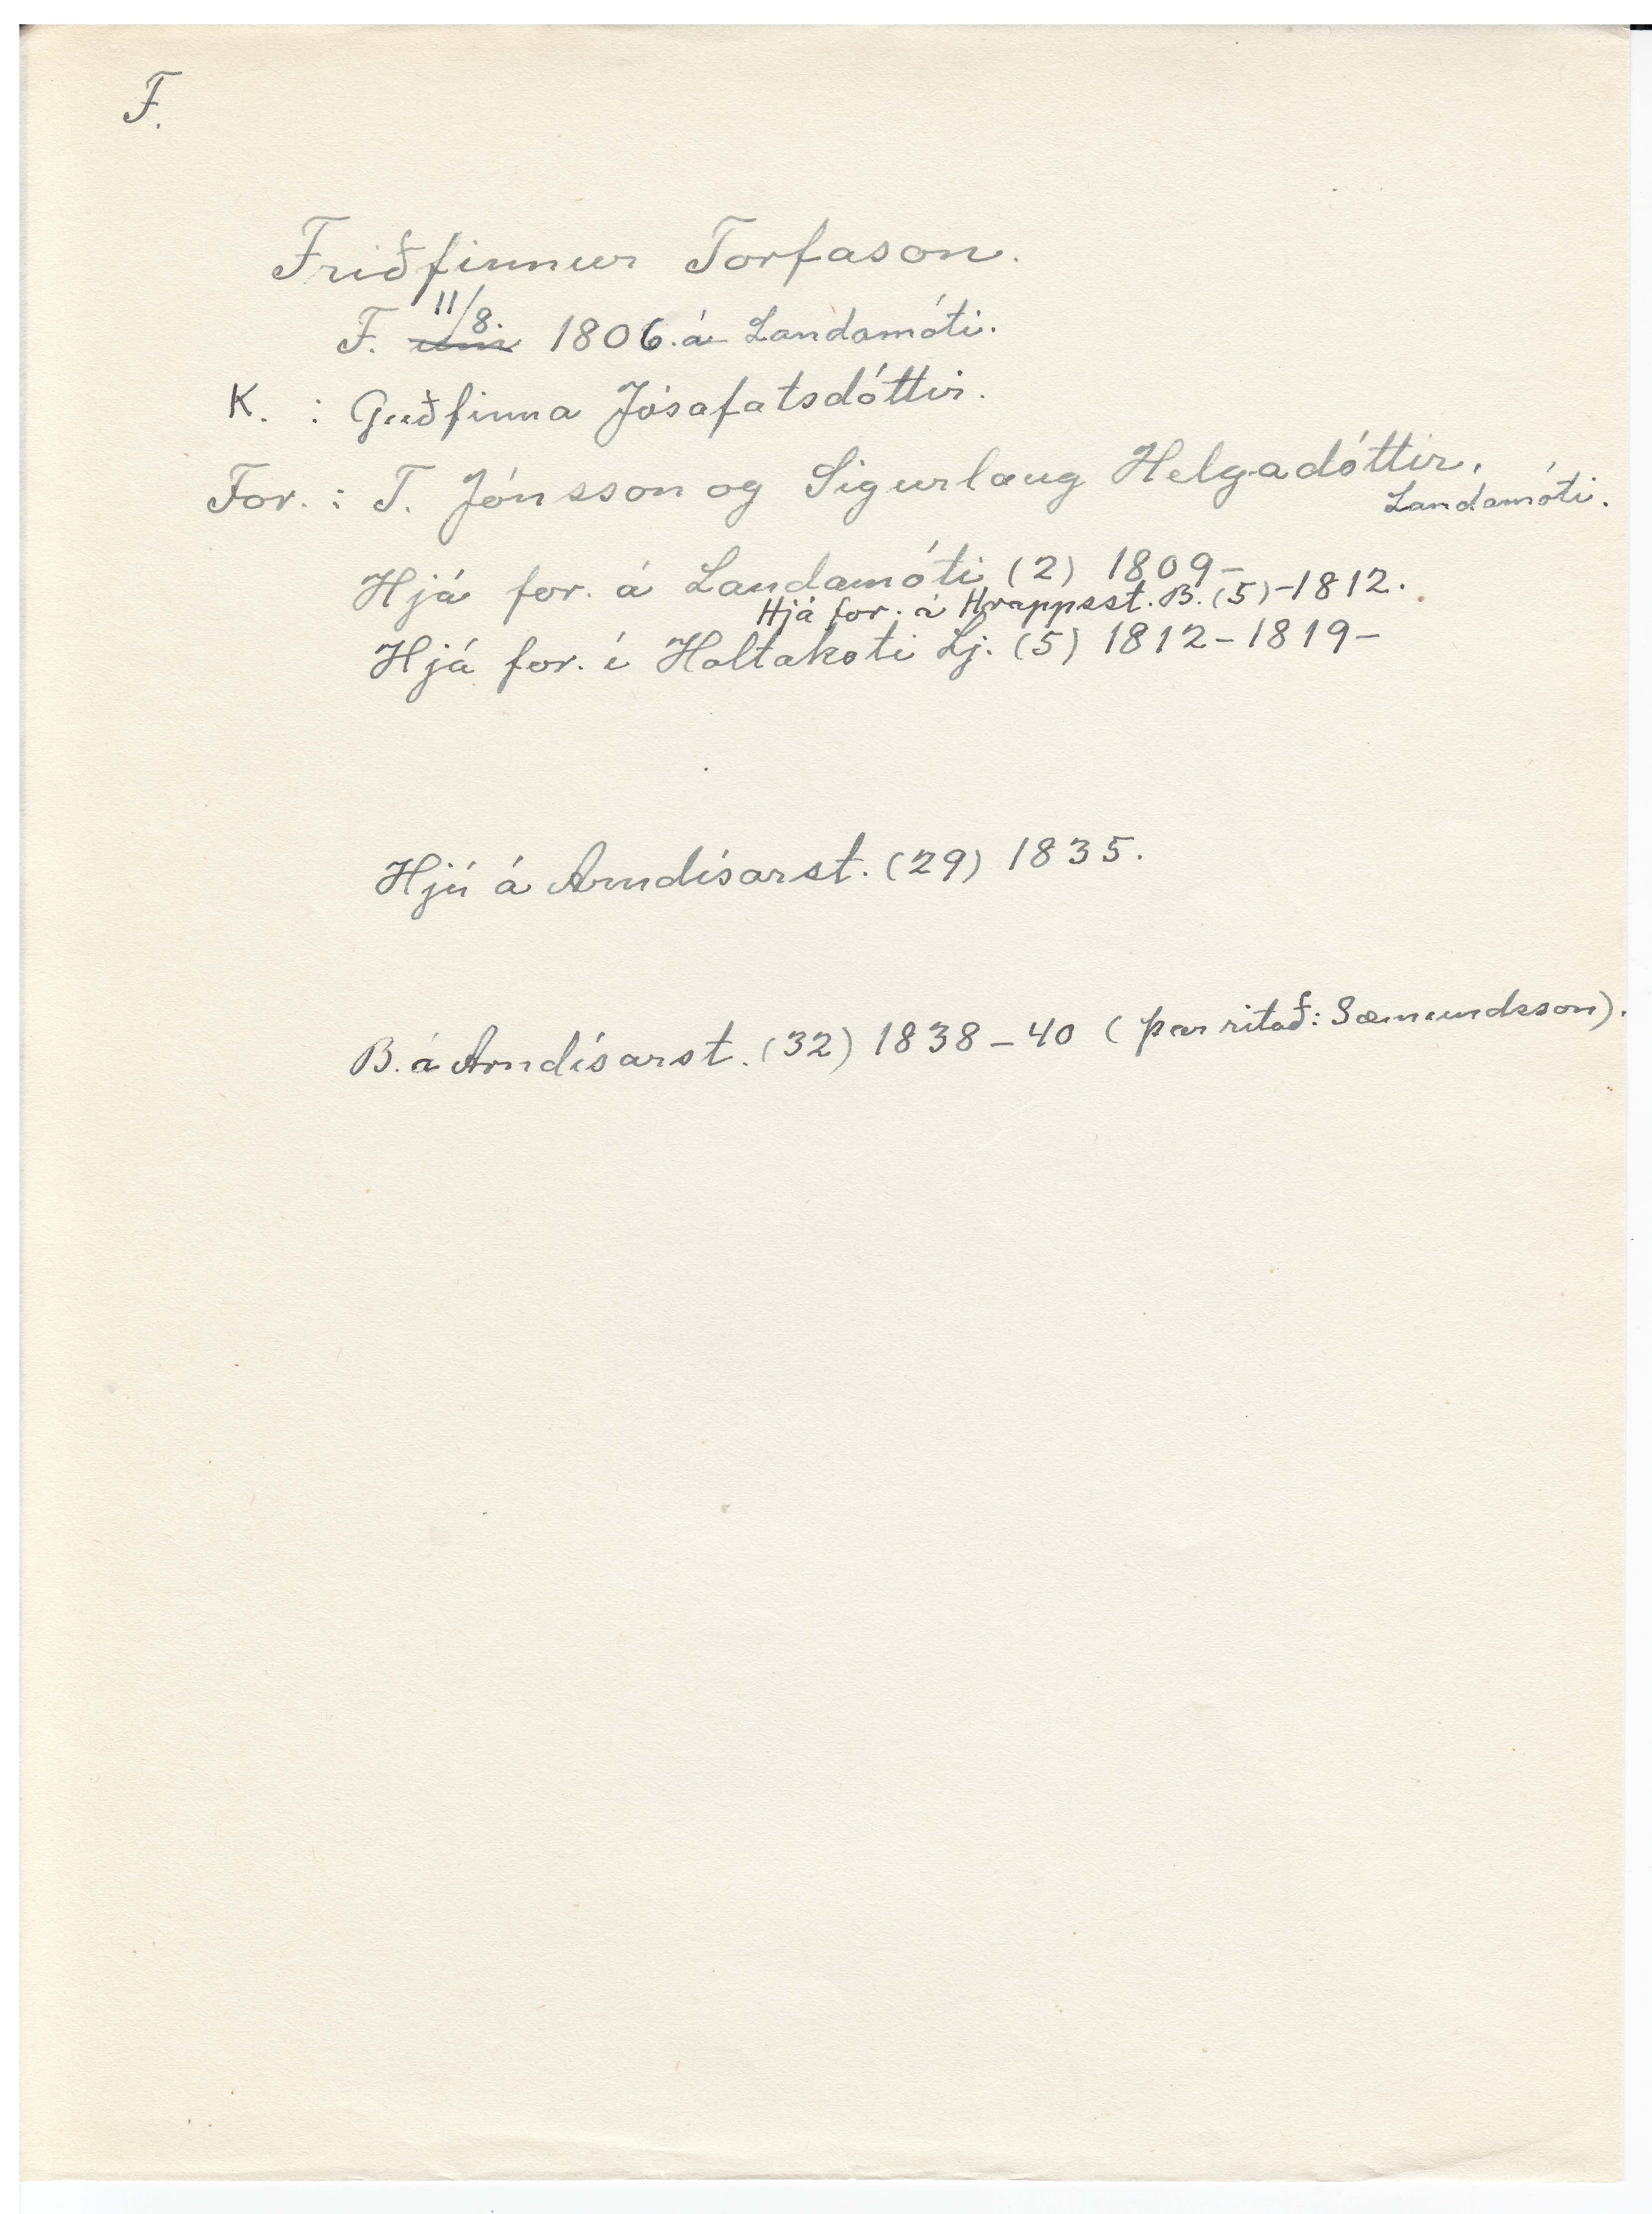 F.
Friðfinnur Torfason.
F. 11/8. um 1806. á Landamóti.
K. : Guðfinna Jósafatsdóttir.
For. : T. Jónsson og Sigurlaug Helgadóttir,
Landamóti.
Hjá for. á Landamóti (2) 1809-
Hjá for. á Hrappsst. B. (5) -1812.
Hjá for. í Holtakoti Lj. (5) 1812-1819-
Hjú á Arndísarst. (29) 1835.
B. á Arndísarst. (32) 1838-40 (þar ritað: Sæmundsson).